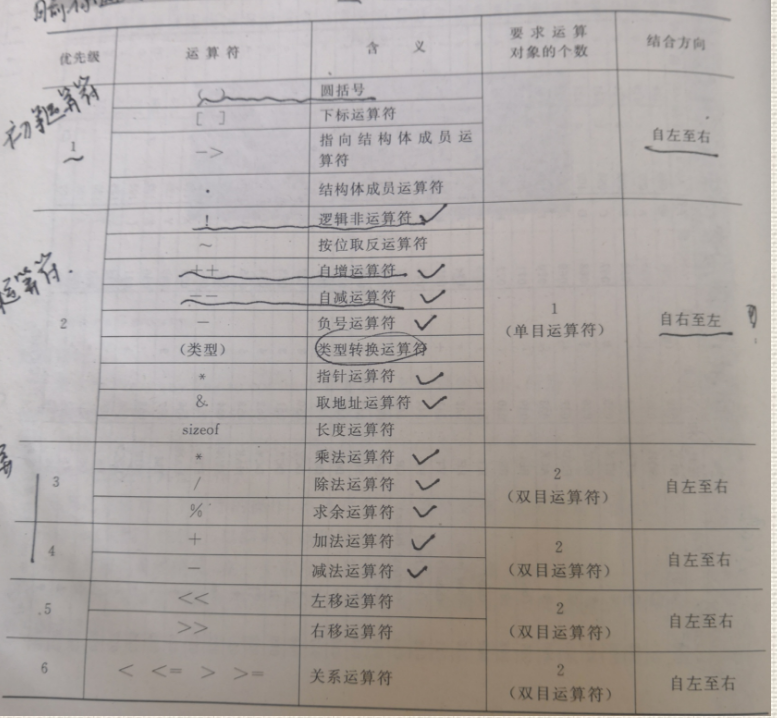 优先级 运算符 含 义 要求运算对象的个数 结合方向
初等运算符
1 ( ) 圆括号 自左至右
[ ] 下标运算符
-> 指向结构体成员运算符
· 结构体成员运算符
运算符.
2 ! 逻辑非运算符 1 (单目运算符) 自右至左
~ 按位取反运算符
++ 自增运算符
-- 自减运算符
- 负号运算符
(类型) 类型转换运算符
* 指针运算符
& 取地址运算符
sizeof 长度运算符
3 * 乘法运算符 2 (双目运算符) 自左至右
/ 除法运算符
% 求余运算符
4 + 加法运算符 2 (双目运算符) 自左至右
- 减法运算符
5 << 左移运算符 2 (双目运算符) 自左至右
>> 右移运算符
6 < <= > >= 关系运算符 2 (双目运算符) 自左至右